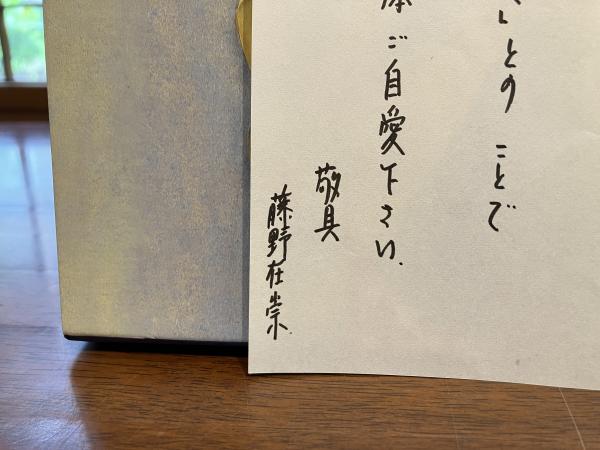 しとの ことで
体ご自愛下さい.
敬具
藤野在崇.